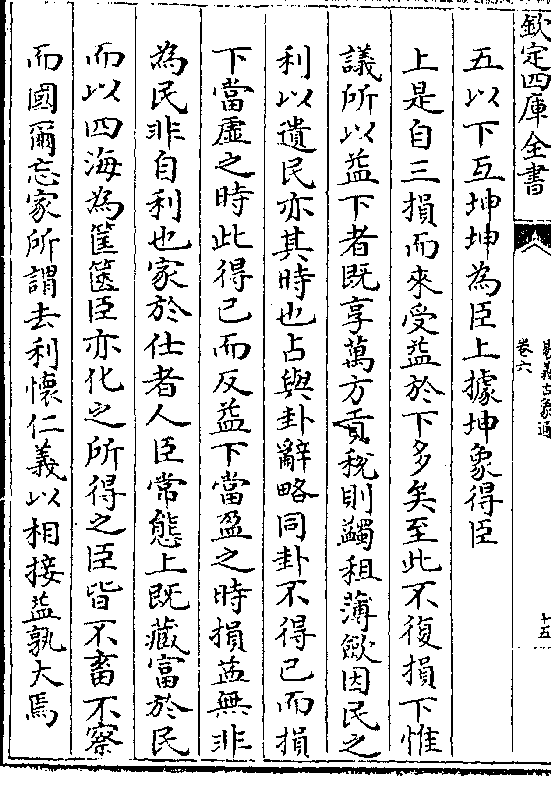 欽定四庫全書
易義古象通
卷六
十五
五以下互坤坤為臣上據坤象得臣
上是自三損而來受益於下多矣至此不復損下惟
議所以益下者既享萬方貢稅則蠲租薄斂因民之
利以遺民亦其時也占與卦辭略同卦不得已而損
下當虛之時此得已而反益下當盈之時損益無非
為民非自利也家於仕者人臣常態上既藏富於民
而以四海為筐篋臣亦化之所得之臣皆不畜不察
而國爾忘家所謂去利懷仁義以相接益孰大焉